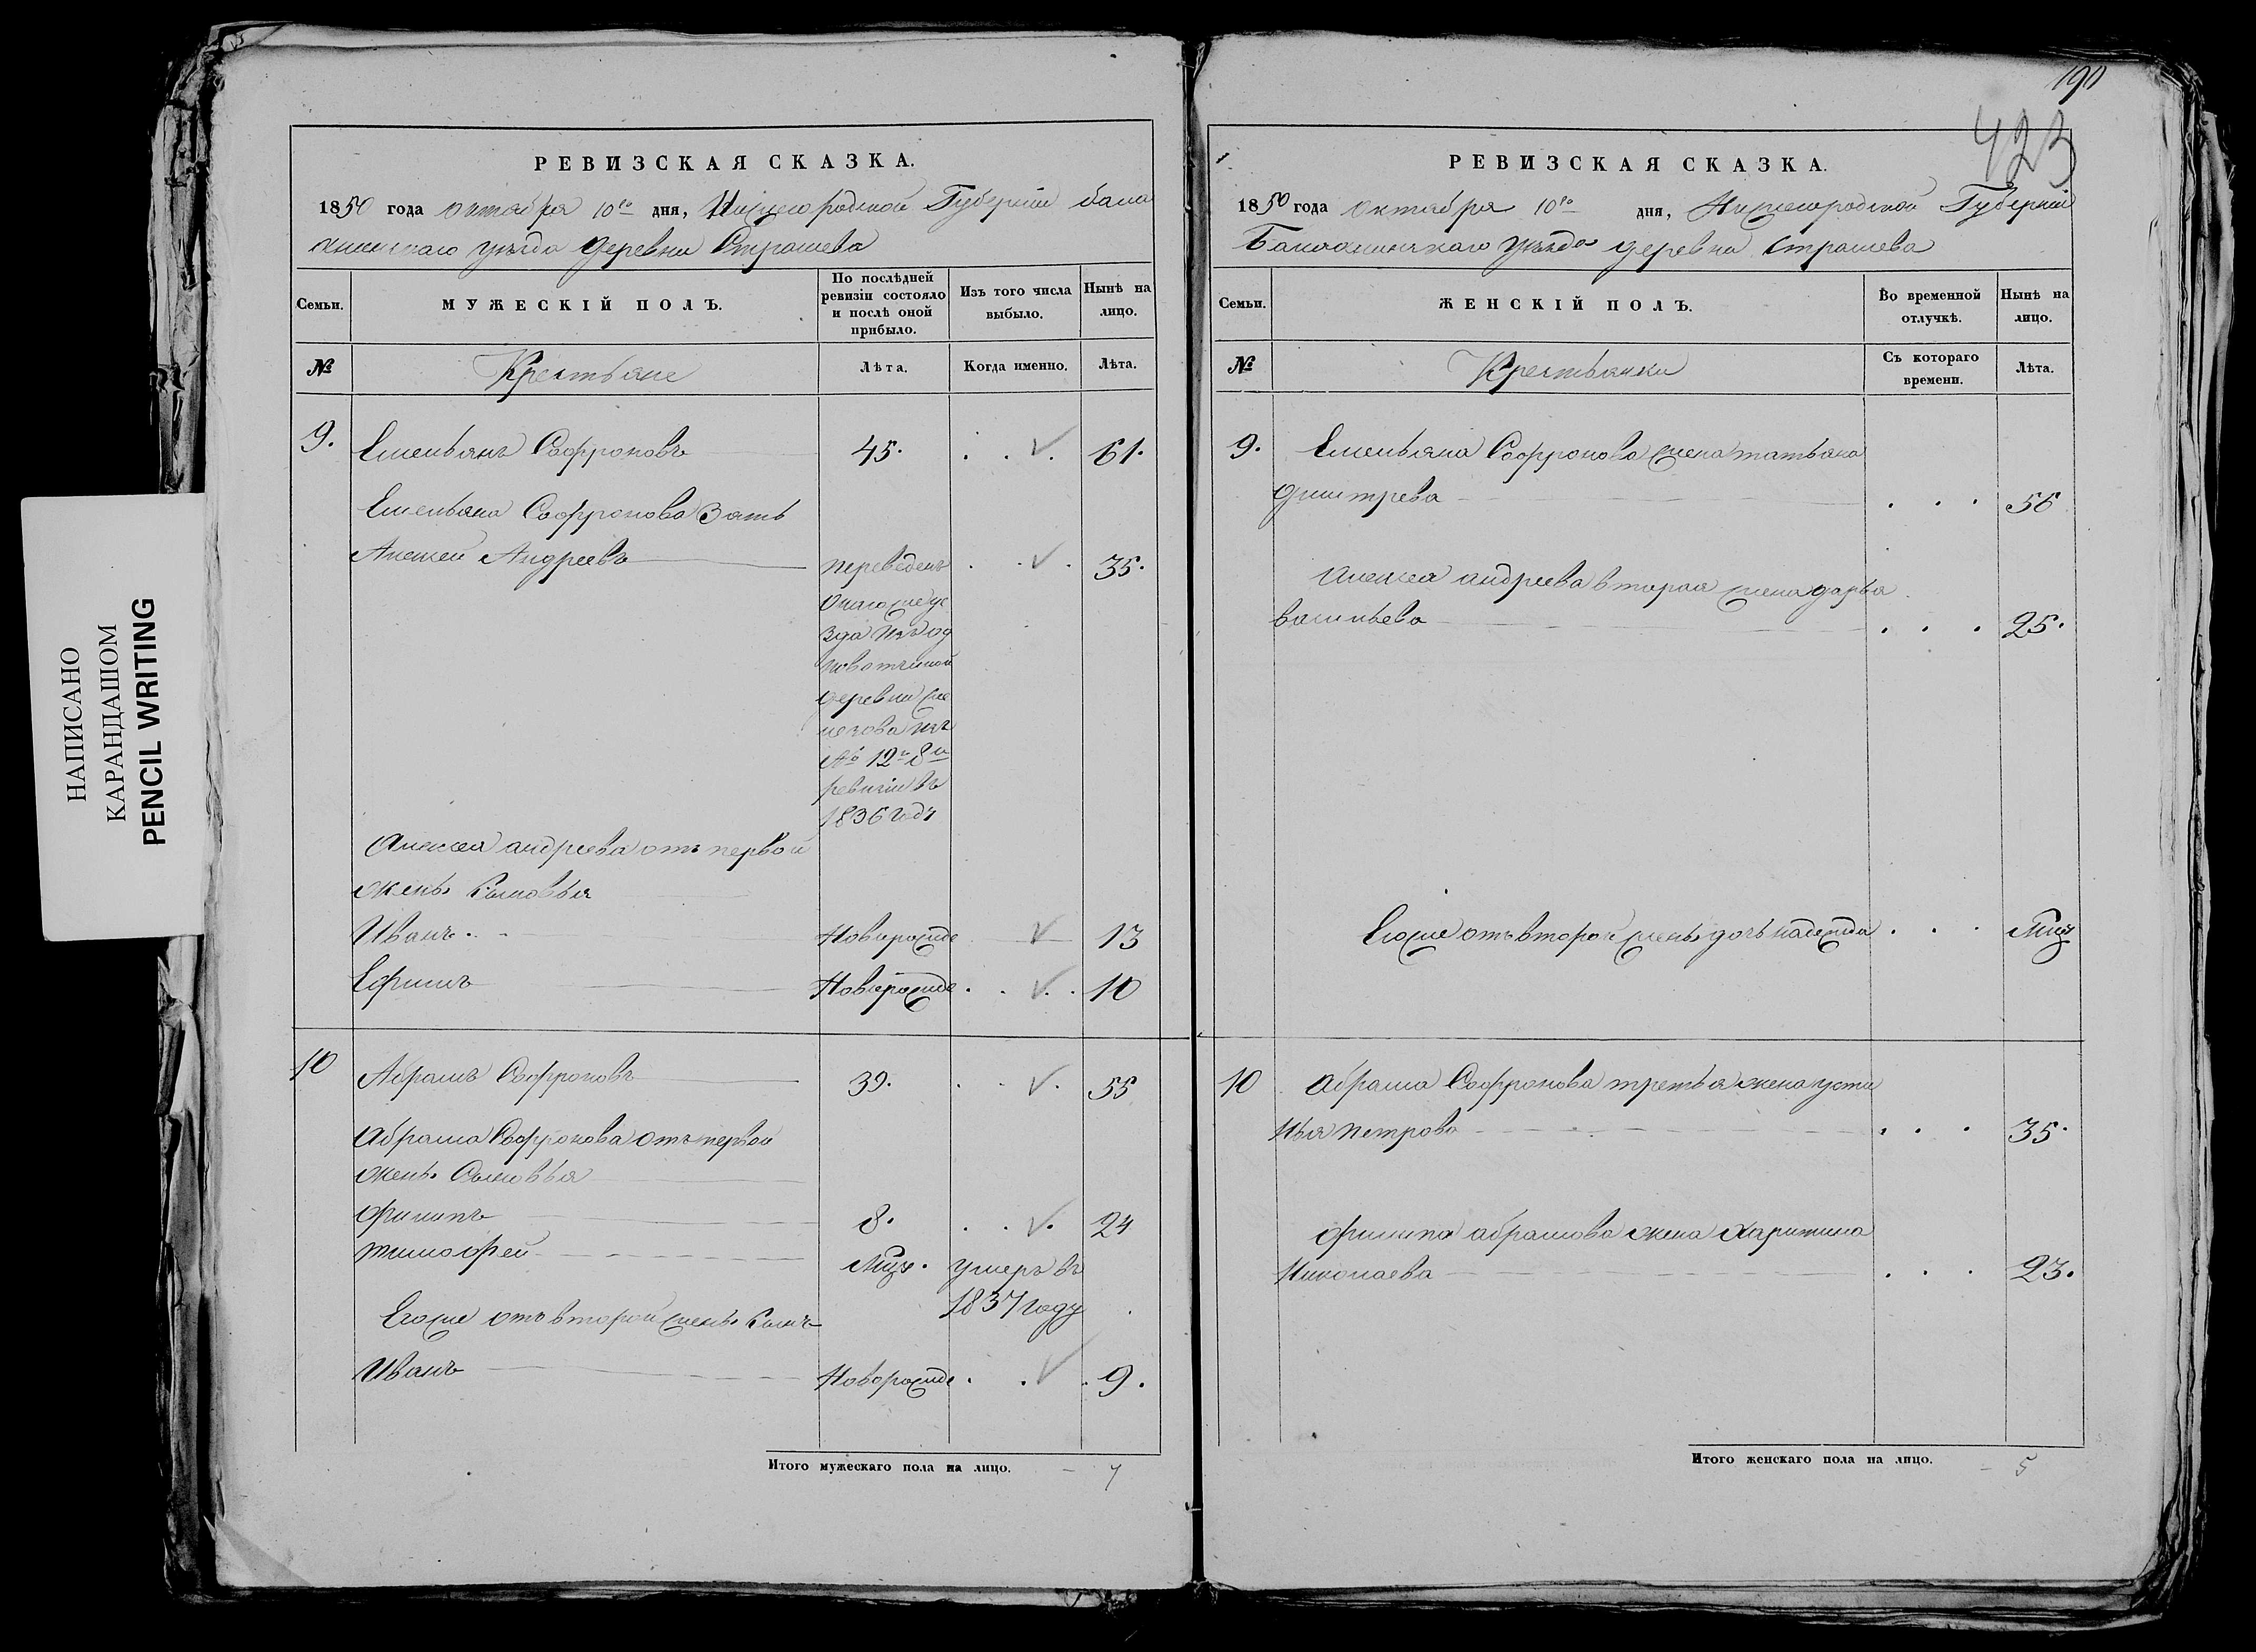 НАПИСАНО
КАРАНДАШОМ
PENCIL WRITING
РЕВИЗСКАЯ СКАЗКА.
1850 года октября 10го дня, Нижегородской Губернiи Бала
хнинскаго уѣзда деревни Страшева
Семьи.
МУЖЕСКІЙ ПОЛЪ.
По послѣдней ревизіи состояло и послѣ оной прибыло.
Изъ того числа выбыло.
Нынѣ на лицо.
№
Крестьяне
Лѣта.
Когда именно.
Лѣта.
9. Емельянъ Софроновъ 45. 61.
Емельяна Софронова Зять
Алексей Андреевъ переведенъ 35.
онагоже уе
зда изъ од
новотчиной
деревни
изъ
№ 12го 8й
ревизiи въ
1836 годѣ
Алексея андреева отъ первой
жены Сыновья
Иванъ. Новорожде 13
Ефимъ Новорожде 10
10 Абрамъ Софроновъ 39. 55
Абрама Софронова отъ первой
жены Сыновья
Филипъ 8. 24
тимофей Мцъ. умеръ въ
1837 году
Егоже отъ второй жены Сынъ
Иванъ Новорожде 9.
Итого мужескаго пола на лицо. 7
190
423
РЕВИЗСКАЯ СКАЗКА.
1850 года октября 10го дня, Нижегородской Губернiи
Балахнинскаго уѣзда деревни Страшева
Семьи.
ЖЕНСКІЙ ПОЛЪ.
Во временной отлучкѣ.
Нынѣ на лицо.
№
Крестьянки
Съ котораго времени.
Лѣта.
9. Емельяна Софронова жена татьяна
дмитрева 56
Алексея андреева вторая жена дарья
васильева 25.
Егоже отъ второй жены дочь надежда Мцъ
10 Абрама Софронова третья жена усти
нья петрова 35.
филипа абрамова жена Харитина
Николаева 23.
Итого женскаго пола на лицо. 5